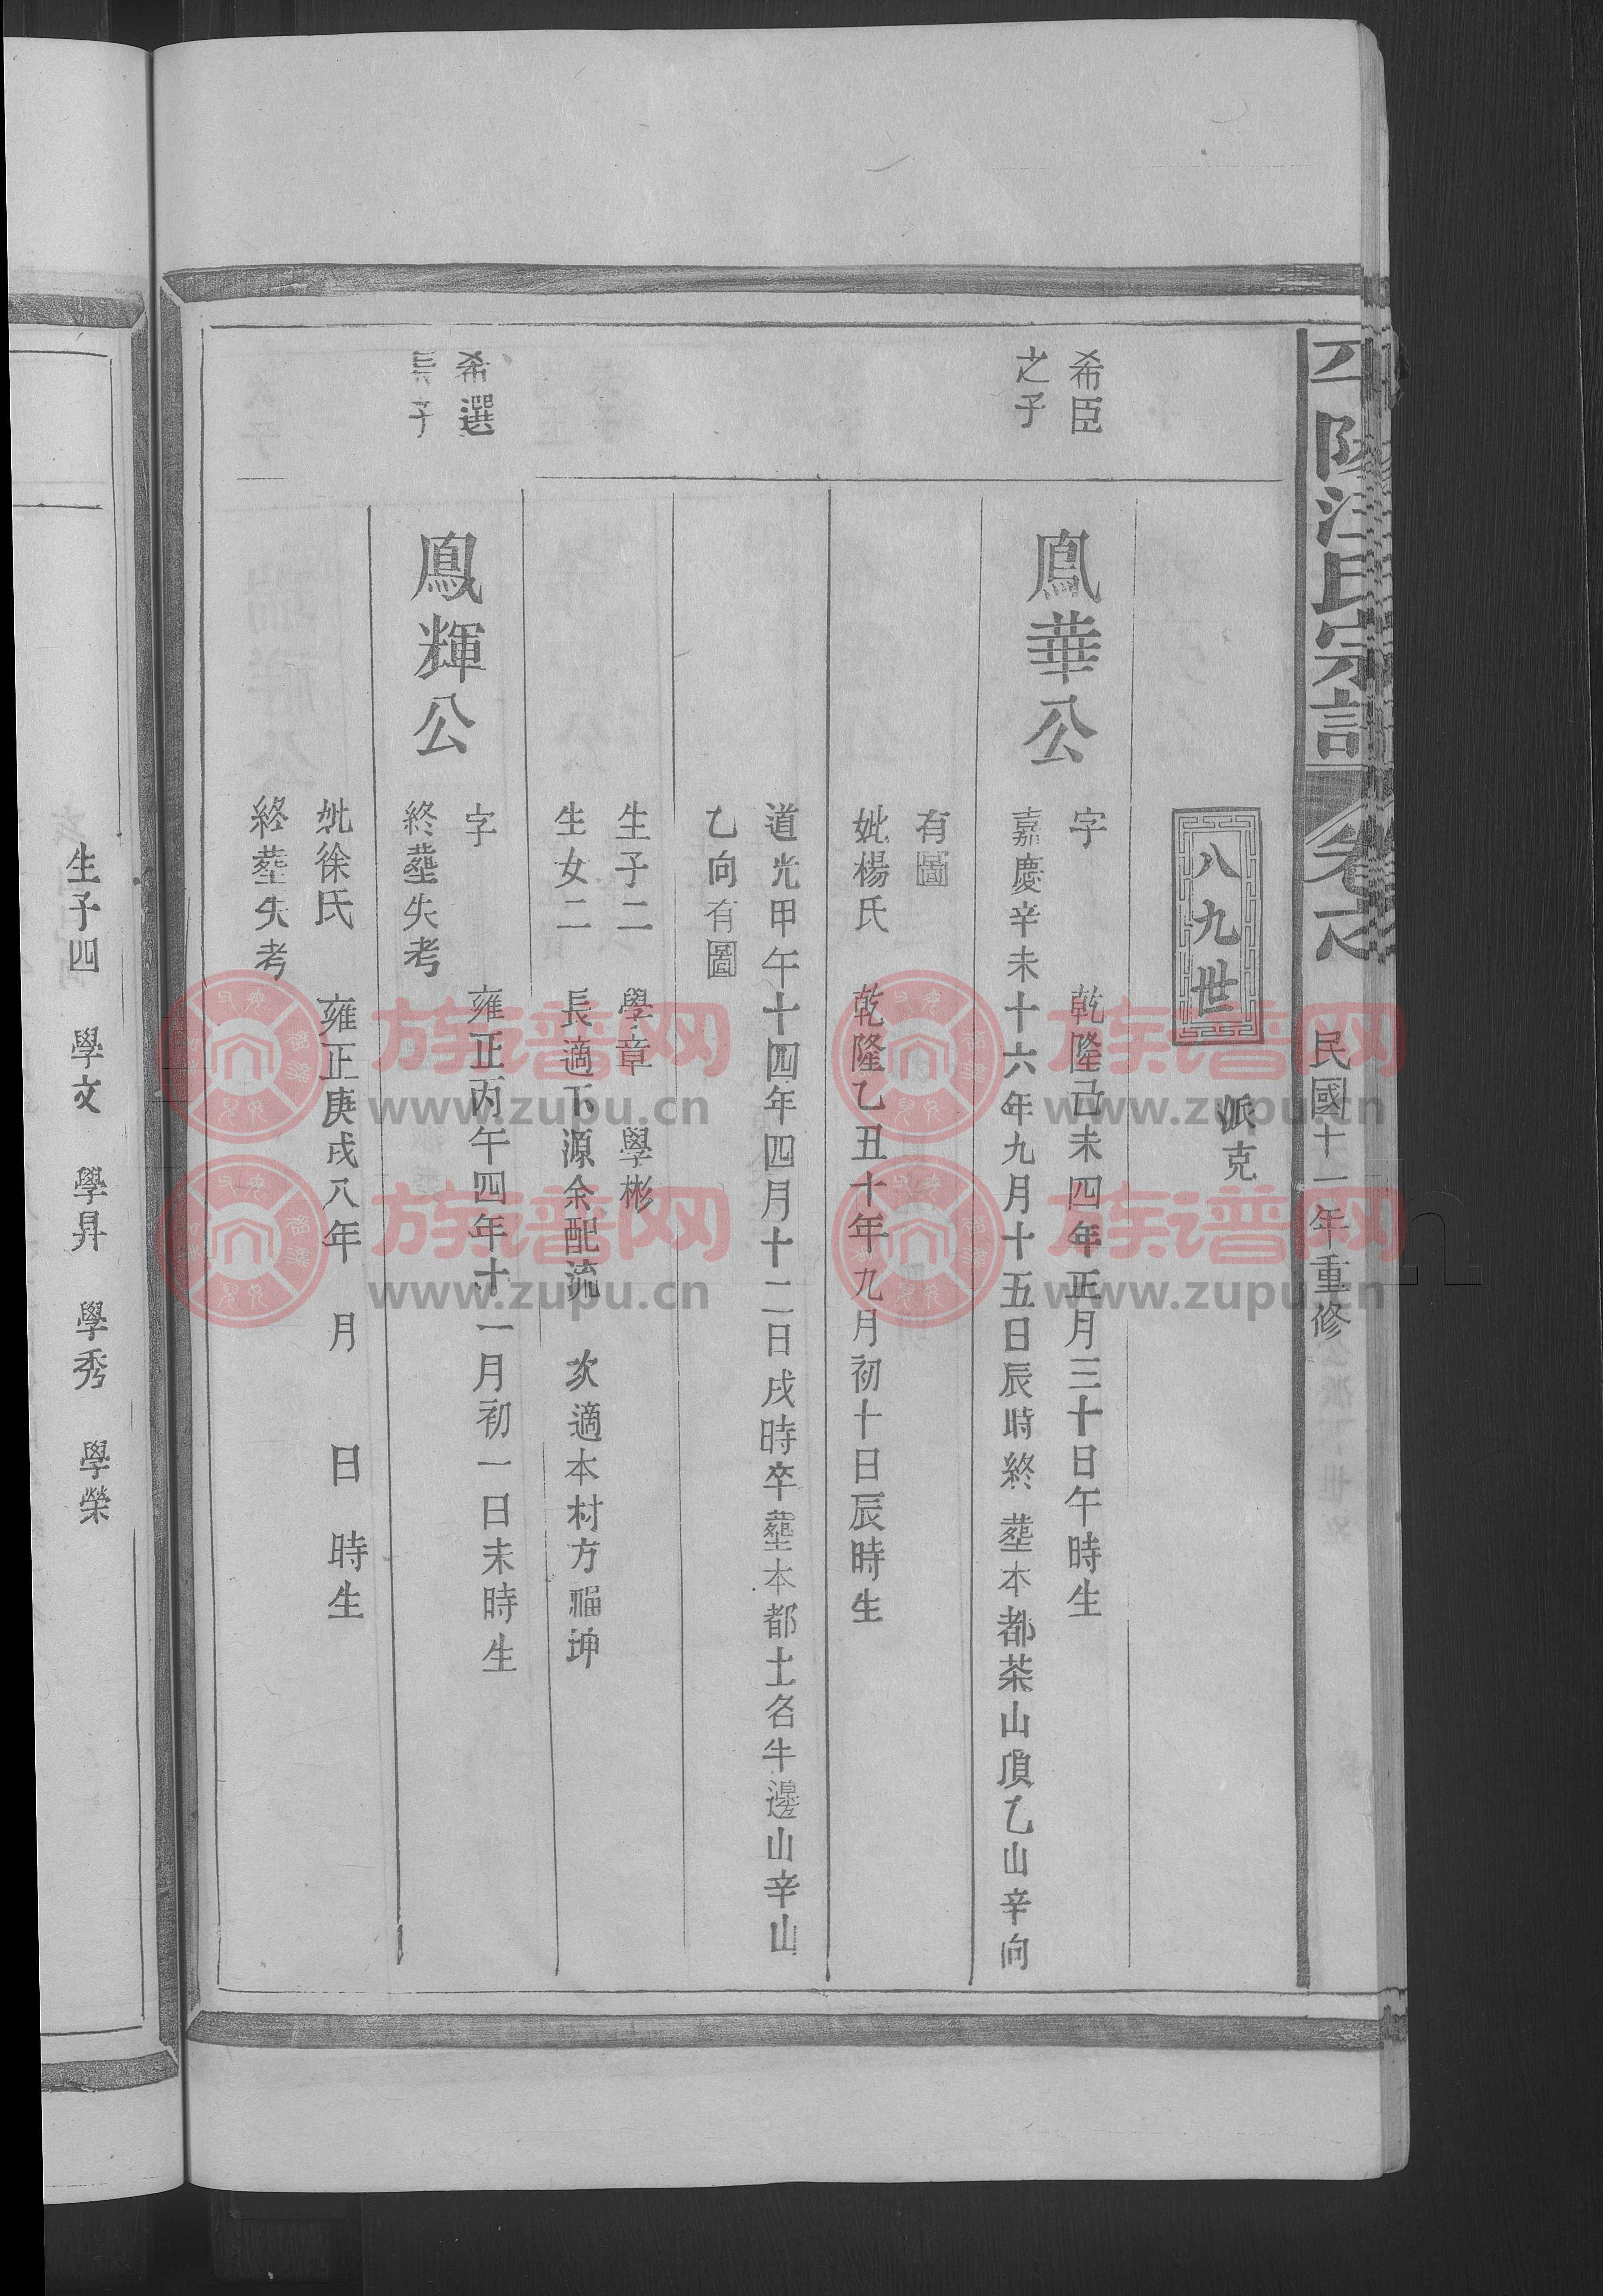 平陽汪氏宗譜 卷之
民國十一年重修
八九世
派克
希臣
之子
鳳華公
字 乾隆己未四年正月三十日午時生
嘉慶辛未十六年九月十五日辰時終 塟本都茶山頂乙山辛向
有圖
妣楊氏 乾隆乙丑十年九月初十日辰時生
道光甲午十四年四月十二日戌時卒塟本都土名牛邊山辛山
乙向有圖
生子二 學章 學彬
生女二 長適下源余配流 次適本村方福坤
希選
長子
鳳輝公
字 雍正丙午四年十一月初一日未時生
終塟失考
妣徐氏 雍正庚戌八年 月 日 時生
終塟失考
生子四 學文 學昇 學秀 學榮
族谱网
www.zupu.cn
族谱网
www.zupu.cn
族谱网
www.zupu.cn
族谱网
www.zupu.cn